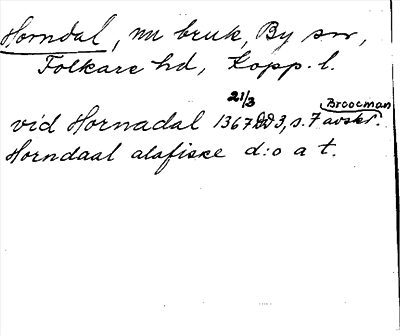 Horndal, nu bruk, By sn,
Folkare hd, Kopp. l.
21/3 Broocman
vid Hornadal 1367 DD3, s. 7 avskr.
Horndaal alafiske d:o a t.